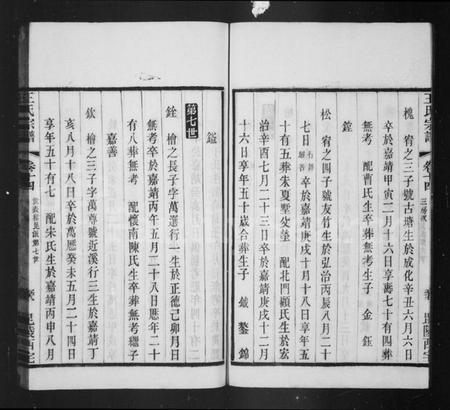 王氏宗譜 卷十四
槐 宥之三子號古塘生於成化辛丑六月六日
卒於嘉靖甲寅二月十六日享壽七十有四葬
無考 配曹氏生卒葬無考生子 金 鈺
鏜
松 宥之四子號友竹生於弘治丙辰八月二十
七日 卒於嘉靖庚戌十月十八日享年五
十有五葬朱夏墅 配北門顧氏生於宏
治辛酉七月二十三日卒於嘉靖庚戌十二月
十六日享年五十歲合葬生子 鉞 鏊 錦
鎰
第七世
銓 檜之長子字萬選行一生於正德己卯月日
無考卒於嘉靖丙午五月二十八日歷年二十
有八葬無考 配懷南陳氏生卒葬無考繼子
嘉善
欽 檜之三子字萬尊號近溪行三生於嘉靖丁
亥八月十八日卒於萬歷癸未五月二十四日
享年五十有七 配朱氏生於嘉靖丙申八月
王氏宗譜 卷十四